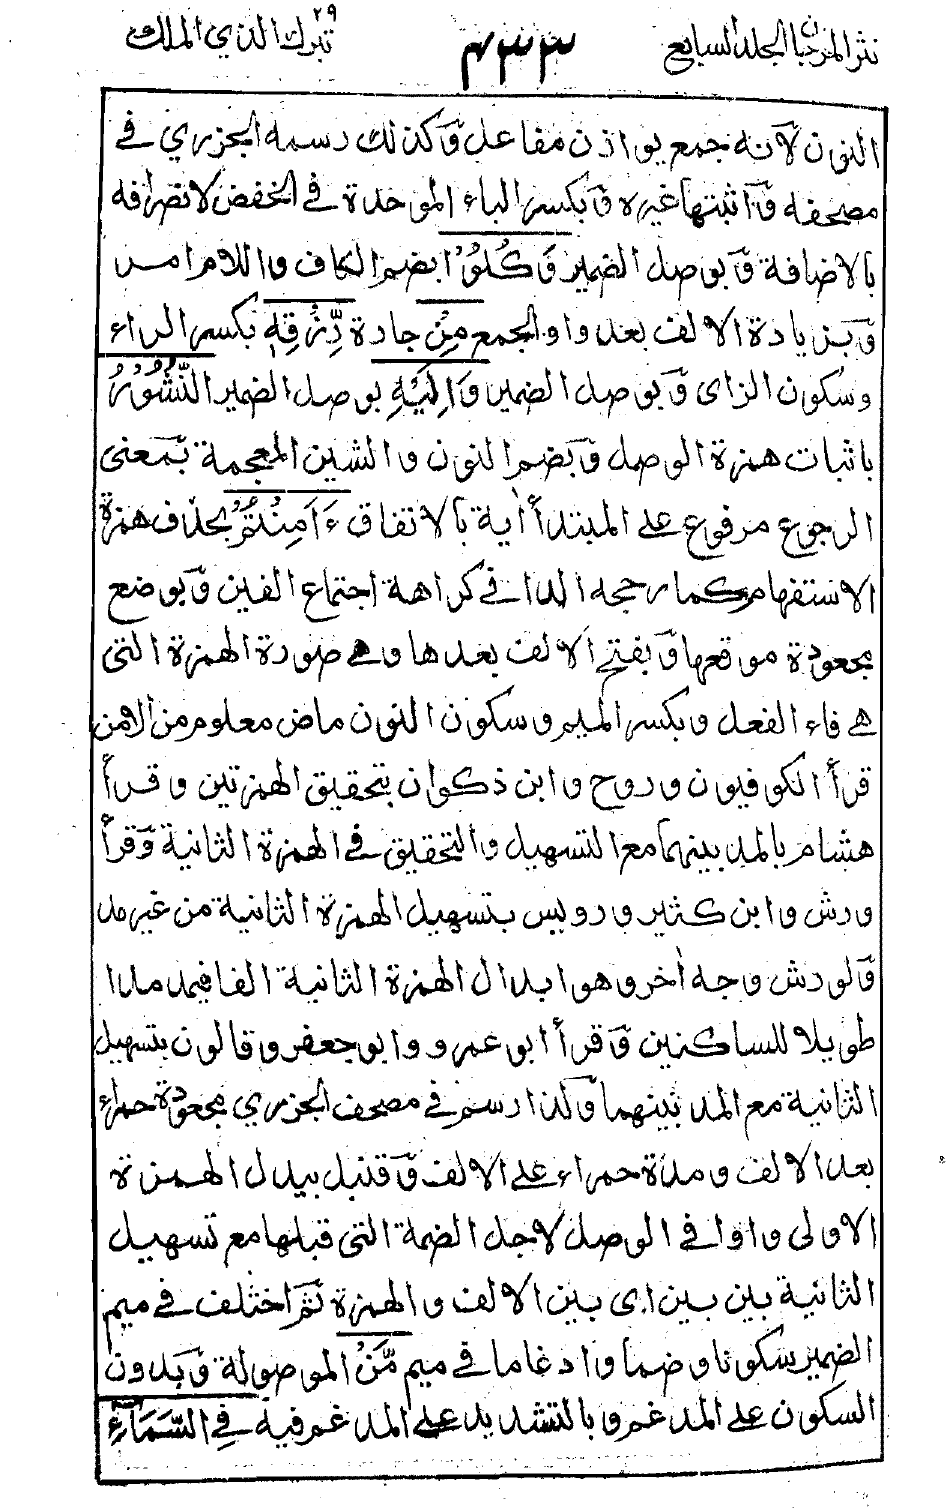 نثر المرجان الجلد السابع ٤٣٣ تبرك الذي الملك ٢٩
النون لانه جمع يوازن مفاعل وكذلك رسمه الجزري في
مصحفه واثبتها غيره وبكسر الباء الموحدة في الخفض لانصرافه
بالاضافة وبوصل الضمير وَكُلُوْا بضم الكاف واللام امر
وبزيادة الالف بعد واو الجمع مِنْ جارة رِّزْقِهٖ بكسر الراء
وسكون الزاى وبوصل الضمير وَاِلَيْهِ بوصل الضمير النُّشُوْرُ
باثبات همزة الوصل وبضم النون والشين المعجمة بمعنى
الرجوع مرفوع على المبتدأ أية بالاتفاق ءَاَمِنْتُمْ بحذف همزة
الاستفهام كما رجحه الدانى كراهة اجتماع الفين وبوضع
مجعودة موقعها وبفتح الالف بعدها وهى صورة الهمزة التى
هى فاء الفعل وبكسر الميم وسكون النون ماض معلوم من الامن
قرأ الكوفيون وروح وابن ذكوان بتحقيق الهمزتين وقرأ
هشام بالمد بينهما مع التسهيل والتحقيق في الهمزة الثانية وقرأ
ورش وابن كثير ورويس بتسهيل الهمزة الثانية من غير مد
ولورش وجه أخر وهو ابدال الهمزة الثانية الفا فيمد مدا
طويلا للساكنين وقرأ ابو عمرو وابو جعفر وقالون بتسهيل
الثانية مع المد بينهما وكذا رسم في مصحف الجزري مجعودة حمراء
بعد الالف ومدة حمراء على الالف وقنبل يبدل الهمزة
الاولى واوا في الوصل لاجل الضمة التى قبلها مع تسهيل
الثانية بين بين اى بين الالف والهمزة ثم اختلف في ميم
الضمير سكونا وضما وادغاما في ميم مَّنْ الموصولة وبدون
السكون على المدغم وبالتشديد على المدغم فيه فِي السَّمَآءِ